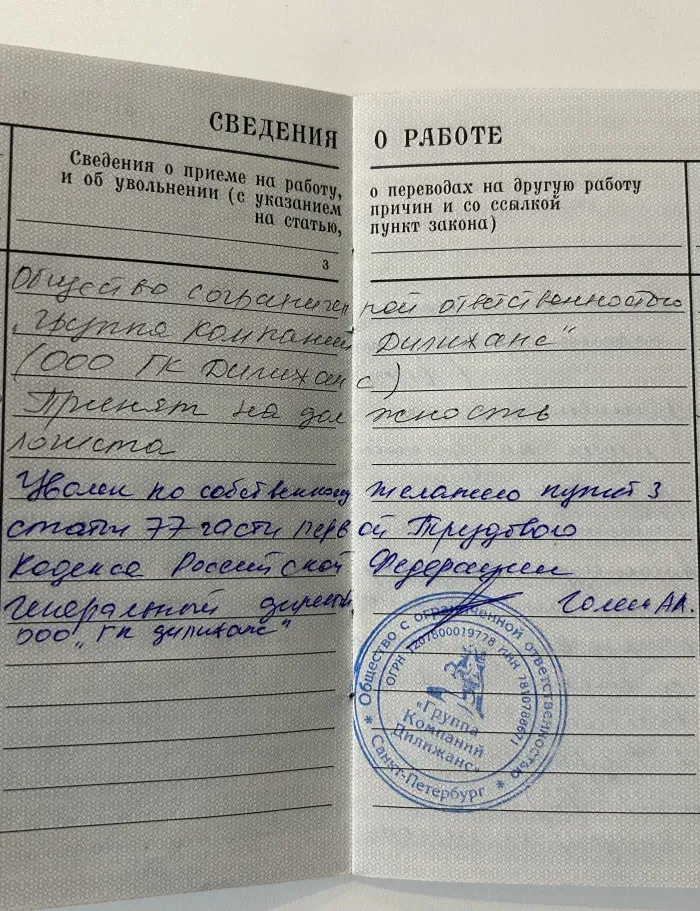 СВЕДЕНИЯ О РАБОТЕ
Сведения о приеме на работу, о переводах на другую работу
и об увольнении (с указанием причин и со ссылкой
на статью, пункт закона)
3
Общество с ограниченной ответственностью
„Группа компаний Дилижанс"
(ООО ГК Дилижанс)
Принят на должность
логиста
Уволен по собственному желанию пункт 3
статьи 77 части первой Трудового
Кодекса Российской Федерации
Генеральный директ
ООО „ГК Дилижанс"
* Общество с ограниченной ответственностью *
ОГРН 1207800019778 ИНН 7810788671
«Группа
Компаний
Дилижанс»
Санкт-Петербург